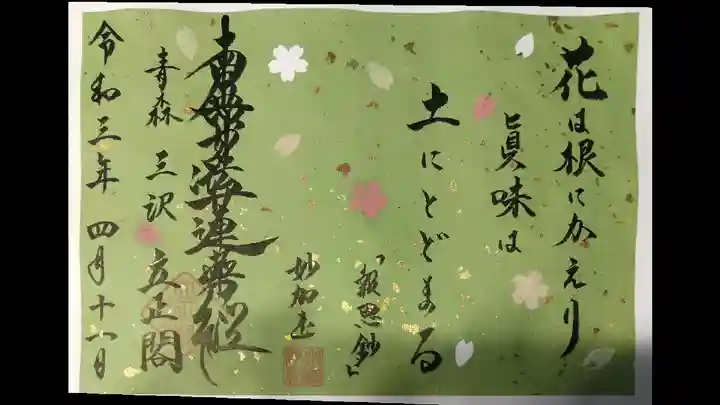 花は根にかえり
眞味は
土にとどまる
「報恩鈔」
妙加玄
南無妙法蓮華経
青森 三沢 立正閣
令和三年 四月十六日